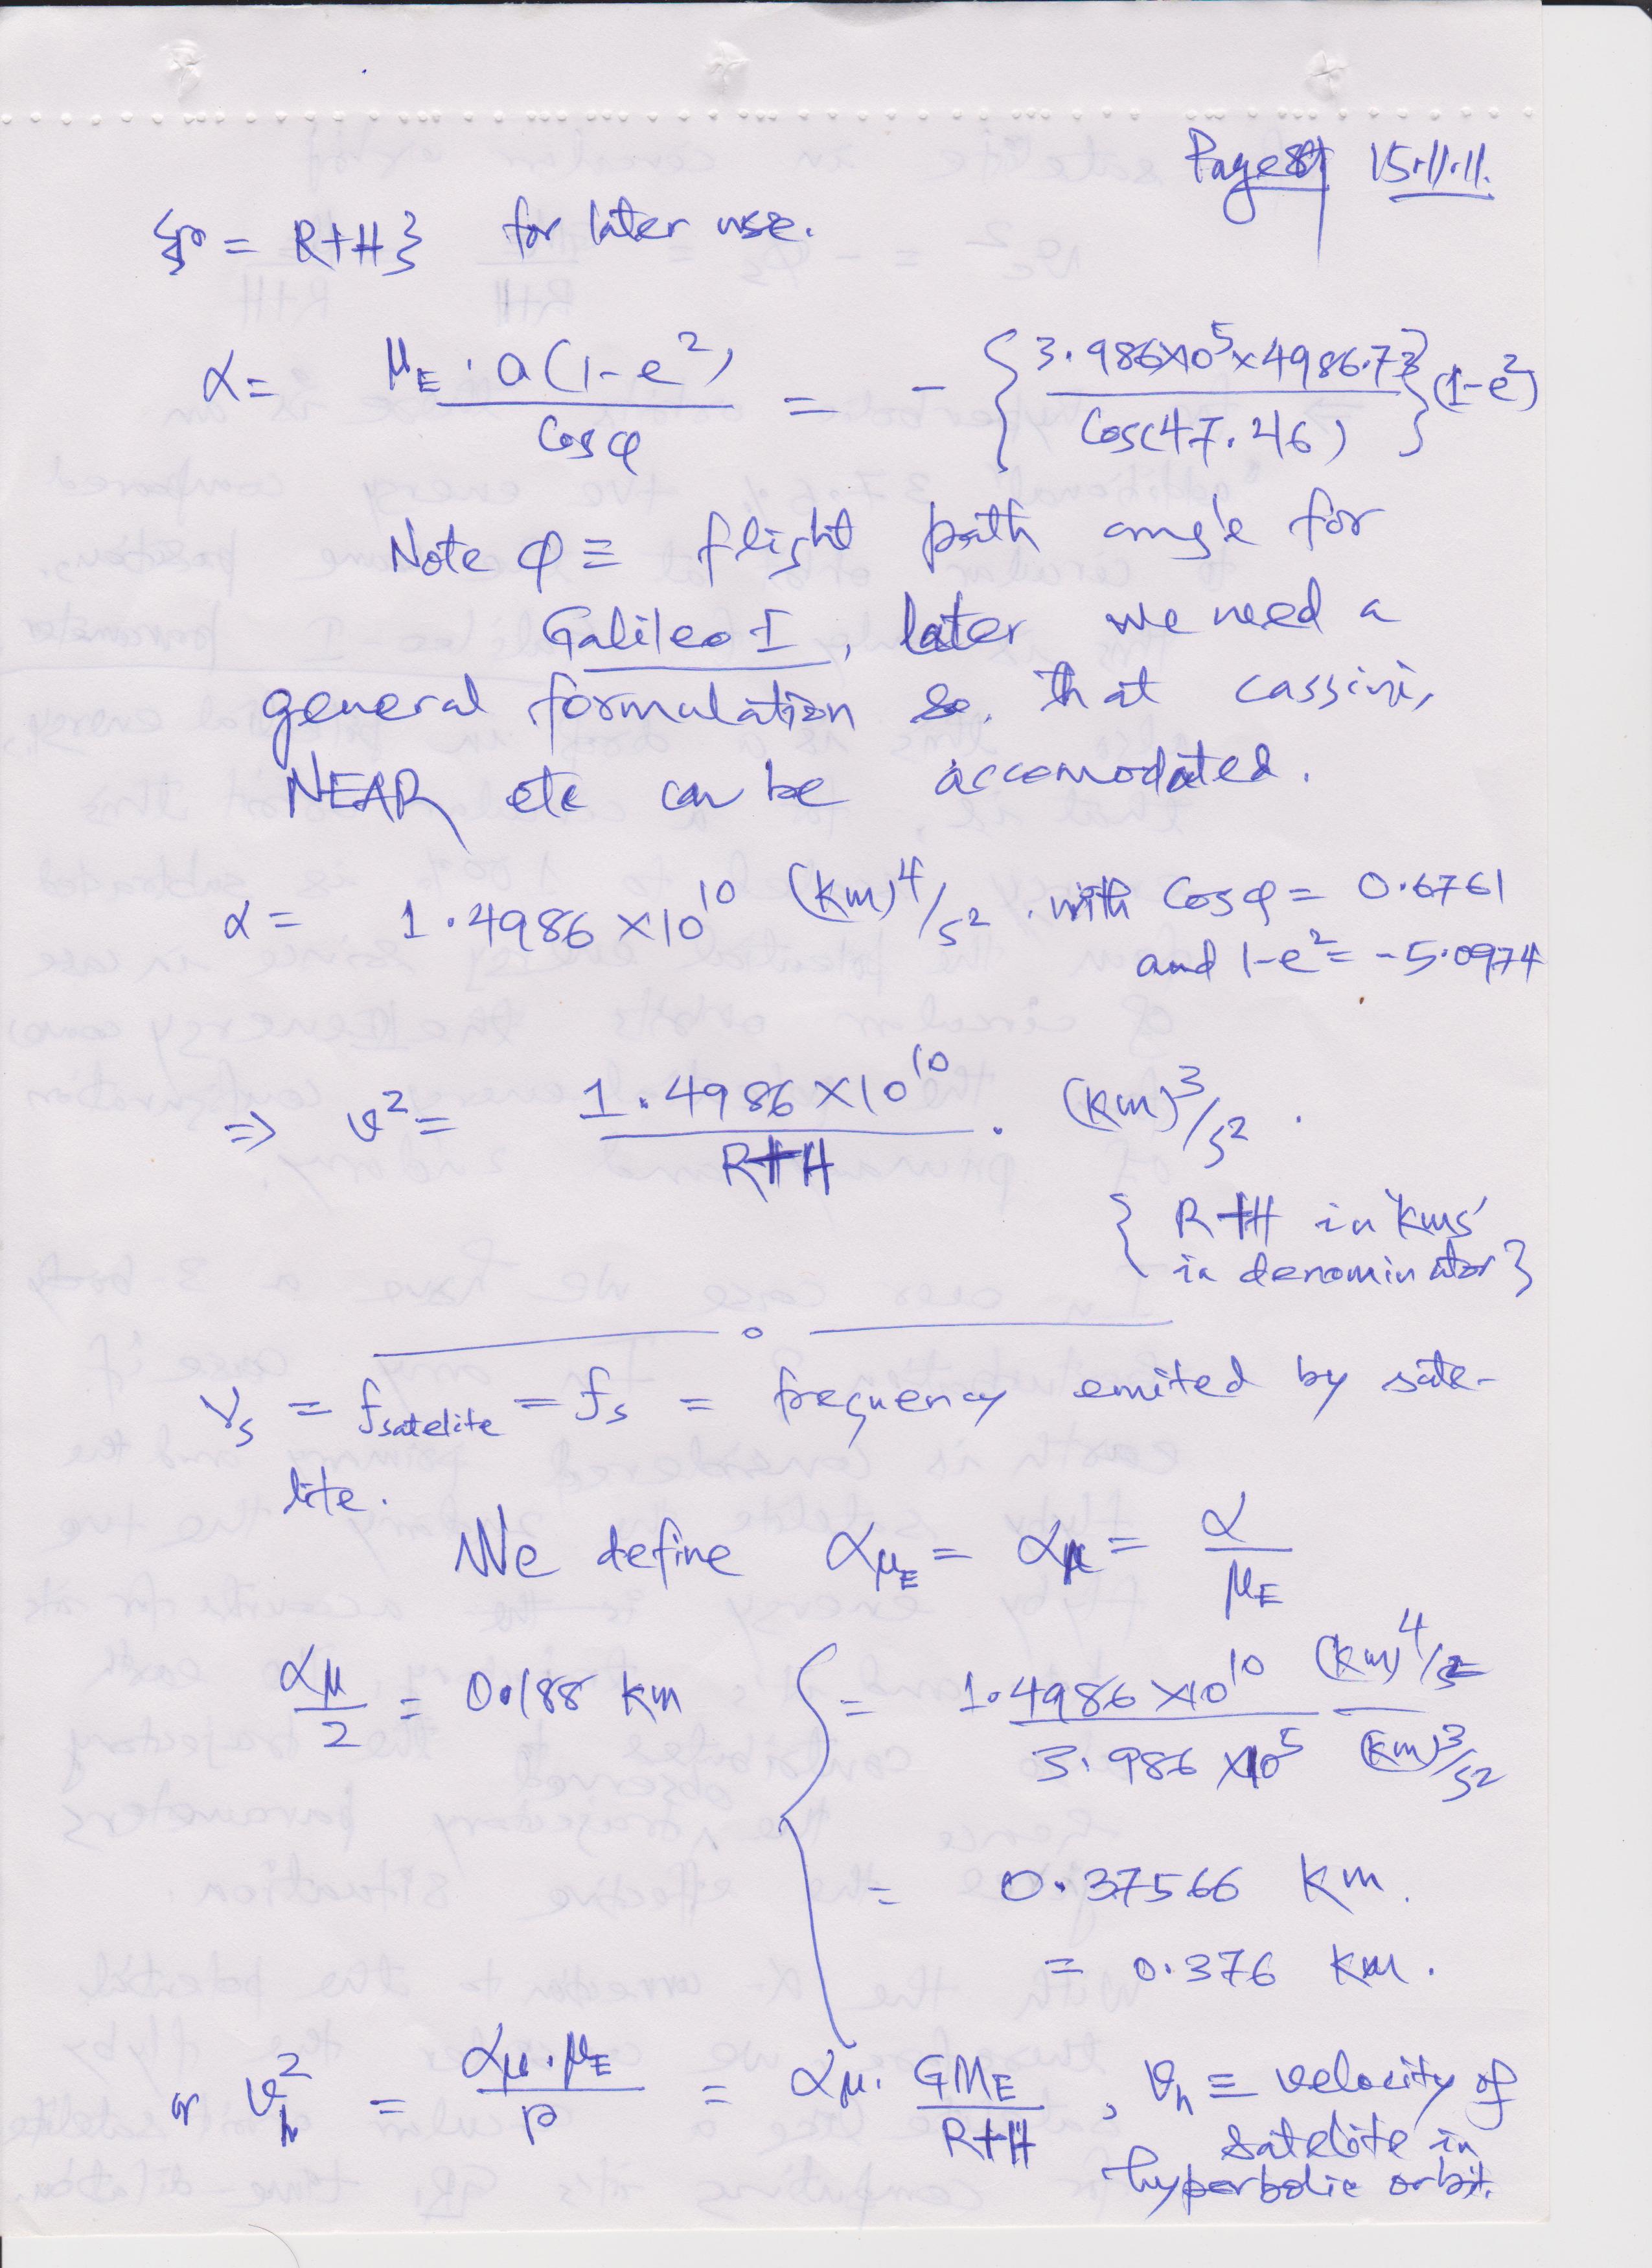 Page 8 15.11.11.
{p = R+H} for later use.
α = μ_E · a(1-e²) / Cos φ = - {3.986×10⁵×4986.73 / Cos(47.46)} (1-e²)
Note φ ≡ flight path angle for
Galileo I, later we need a
general formulation so that cassini,
NEAR etc can be accomodated.
α = 1.4986 ×10¹⁰ (km)⁴/s² . with Cos φ = 0.6761
and 1-e² = -5.0974
⇒ v² = 1.4986 ×10¹⁰ / R+H . (km)³/s² .
{ R+H in 'kms'
in denominator }
ν_s = f_satelite = f_s = frequency emited by sate-
lite.
We define α_μ_E = α_μ = α / μ_E
α_μ / 2 = 0.188 km { = 1.4986 ×10¹⁰ / 3.986 ×10⁵ (km)⁴/s² / (km)³/s²
= 0.37566 Km.
= 0.376 Km.
or v_h² = α_μ · μ_E / p = α_μ · GM_E / R+H , v_h ≡ velocity of
satelite in
hyperbolic orbit.